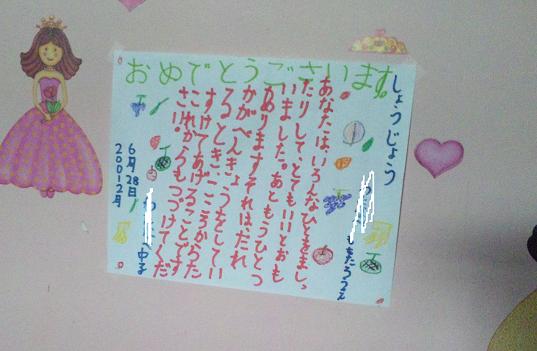 おめでとうございます。
しょうじょう
ももたろうえ
あなたは、いろんなひとを
たりして、とてもいいとおも
いました。あともうひとつ
ありますそれは、だれ
かがべんきょうをしてい
るとき、こころからた
すけてあげることです
これからもつづけてくだ
さい。
6月28日
20012月